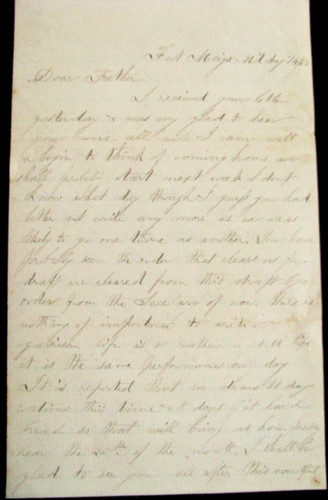 Dear Father
I received your letter
yesterday & was very glad to hear
you were all well I am well
& begin to think of coming home we
shall start next week I don't
know what day though I guess you had
better not write any more as we are as
likely to go one time as another. You have
probably seen the order that clears us from
draft we are cleared from this draft
order from the Secetary of war. there is
nothing of importance to write
garrison life is a rather dull life
it is the same performance every day
It is reported that we draw 11 days
rations this time & days of it hard
bread so that will bring us home
near the 20th of the month, I shall be
glad to see you all after this